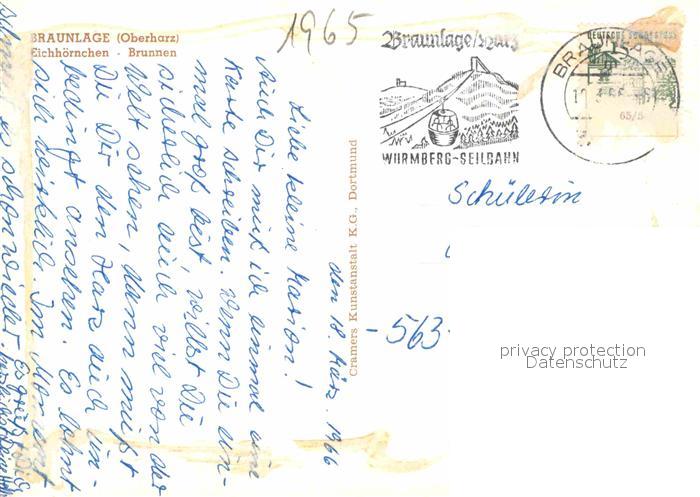 1965
BRAUNLAGE (Oberharz)
Eichhörnchen - Brunnen
Braunlage/Harz
WURMBERG-SEILBAHN
DEUTSCHE BUNDESPOST
BRAUNLAGE
65/5
den 18. März. 1966
Liebe kleine Marion!
Auch Dir muß ich einmal eine
Karte schreiben. Wenn Du ein-
mal groß bist, willst Du
sicherlich auch viel von der
Welt sehen, dann mußt
Du Dir den Harz auch un-
bedingt ansehen. Es lohnt
sich wirklich. Im
so schön wieder.
Es grüßt Dich
Cramers Kunstanstalt K.G., Dortmund
Schülerin
- 563
privacy protection
Datenschutz